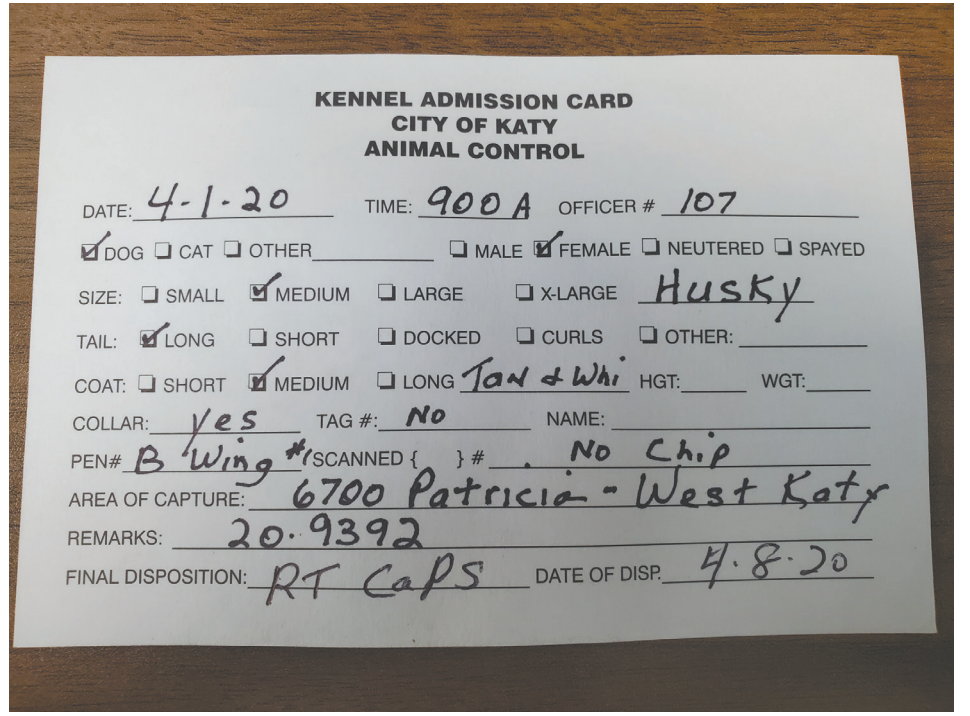 KENNEL ADMISSION CARD
CITY OF KATY
ANIMAL CONTROL
DATE: 4-1-20 TIME: 900 A OFFICER # 107
☑ DOG ☐ CAT ☐ OTHER ☐ MALE ☑ FEMALE ☐ NEUTERED ☐ SPAYED
SIZE: ☐ SMALL ☑ MEDIUM ☐ LARGE ☐ X-LARGE Husky
TAIL: ☑ LONG ☐ SHORT ☐ DOCKED ☐ CURLS ☐ OTHER:
COAT: ☐ SHORT ☑ MEDIUM ☐ LONG Tan & Whi HGT: WGT:
COLLAR: yes TAG #: No NAME:
PEN# B Wing #1 SCANNED { } # . No Chip
AREA OF CAPTURE: 6700 Patricia - West Katy
REMARKS: 20.9392
FINAL DISPOSITION: RT CaPS DATE OF DISP. 4.8.20